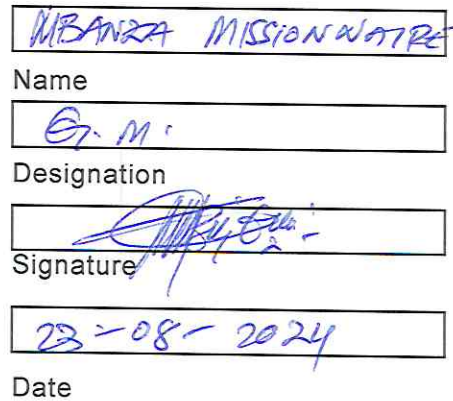 MBANZA MISSIONNAIRE
Name
G. M.
Designation
Signature
23-08-2024
Date